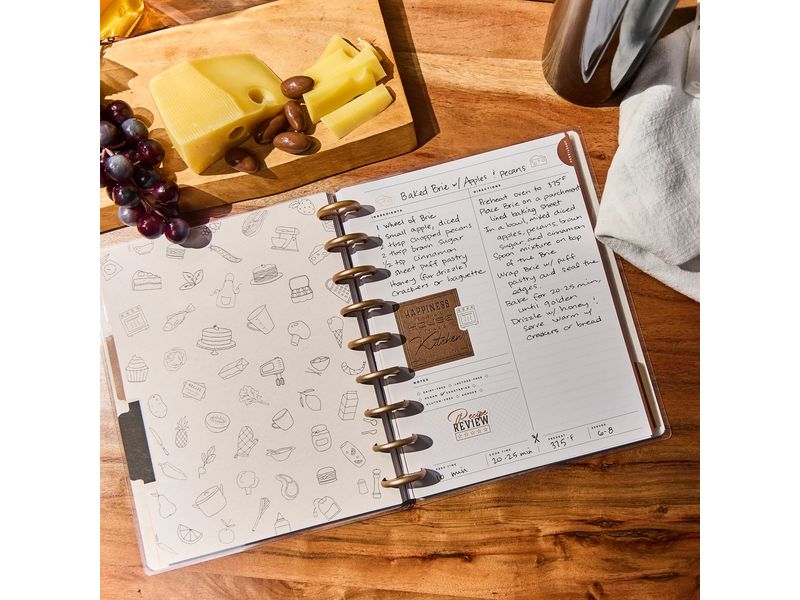 APPETIZERS
Baked Brie w/ Apples & Pecans
INGREDIENTS
1 Wheel of Brie
1 small apple, diced
2 tbsp chopped pecans
2 tbsp brown sugar
1/2 tsp cinnamon
1 sheet puff pastry
Honey (for drizzle)
Crackers or baguette
HAPPINESS
HOUSE
Kitchen
NOTES
DAIRY-FREE LACTOSE-FREE
VEGAN VEGETARIAN
GLUTEN-FREE
Recipe
REVIEW
DIRECTIONS
Preheat oven to 375°F
Place Brie on a parchment
lined baking sheet
In a bowl, mixed diced
apples, pecans, brown
sugar, and cinnamon
Spoon mixture on top
of the Brie
Wrap Brie w/ puff
pastry and seal the
edges.
Bake for 20-25 min,
until golden
Drizzle w/ honey &
serve warm w/
crackers or bread
PREP TIME
10 min
COOK TIME
20-25 min
PREHEAT
375°F
SERVES
6-8